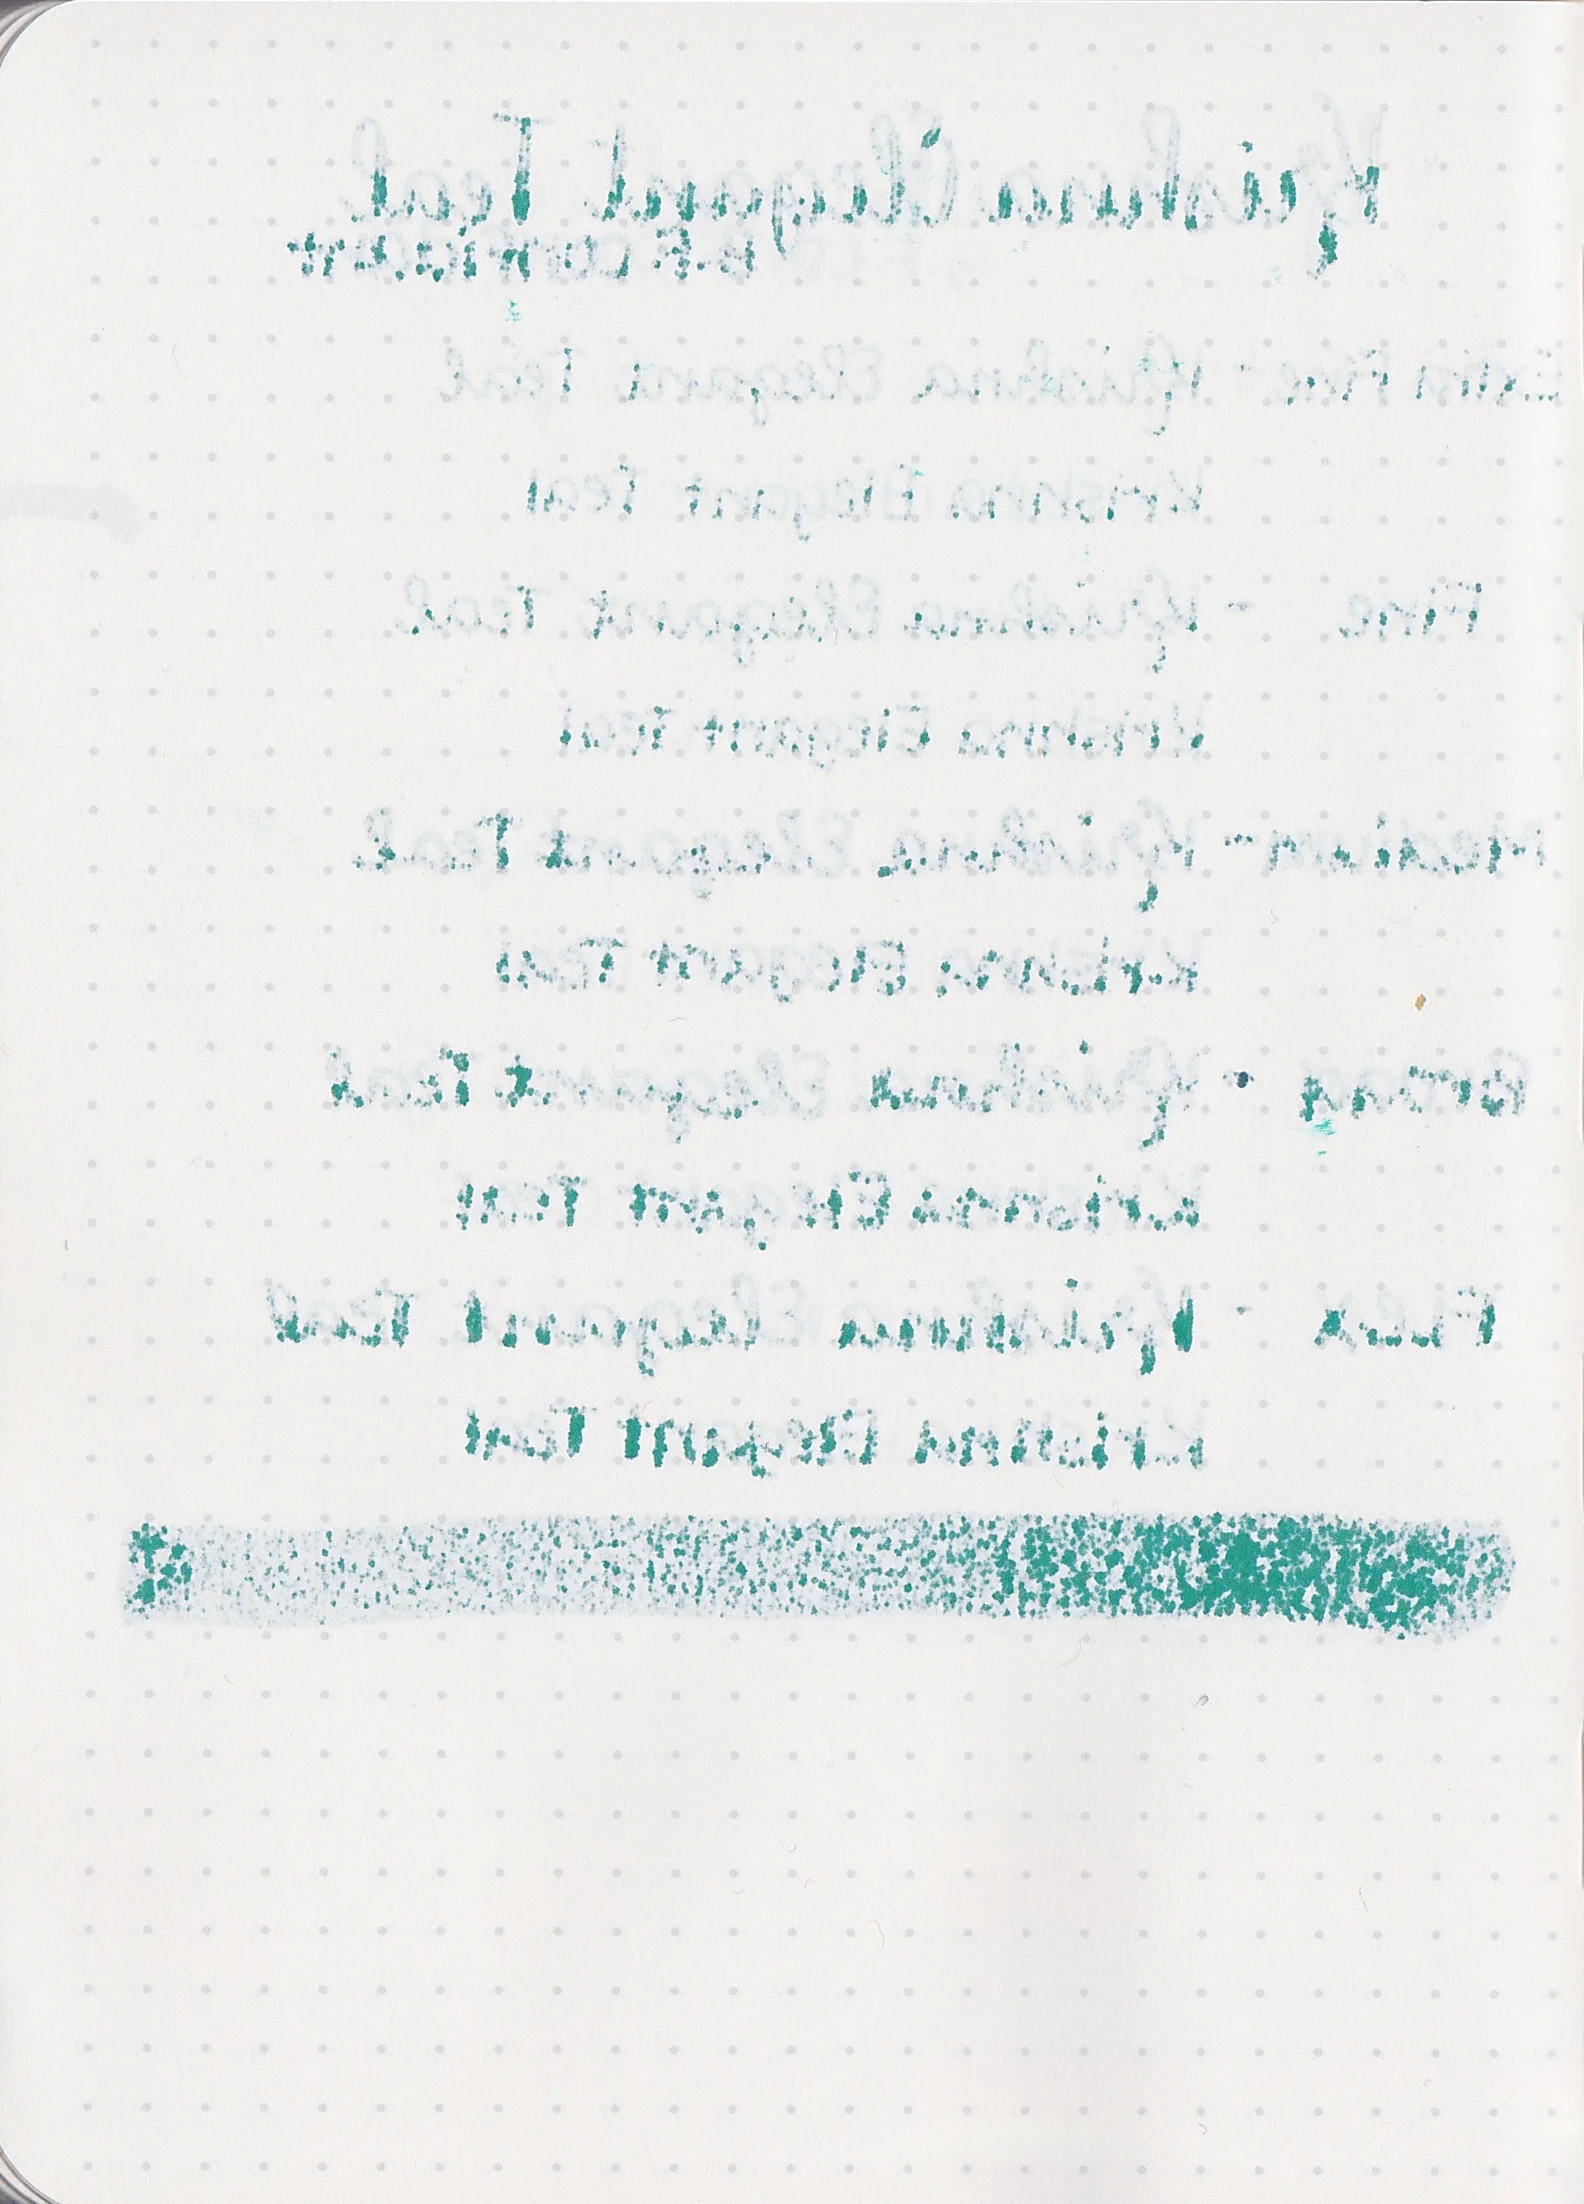 Krishna Elegant Teal
Extra Fine - Krishna Elegant Teal
Krishna Elegant Teal
Fine - Krishna Elegant Teal
Krishna Elegant Teal
Medium - Krishna Elegant Teal
Krishna Elegant Teal
Broad - Krishna Elegant Teal
Krishna Elegant Teal
Flex - Krishna Elegant Teal
Krishna Elegant Teal